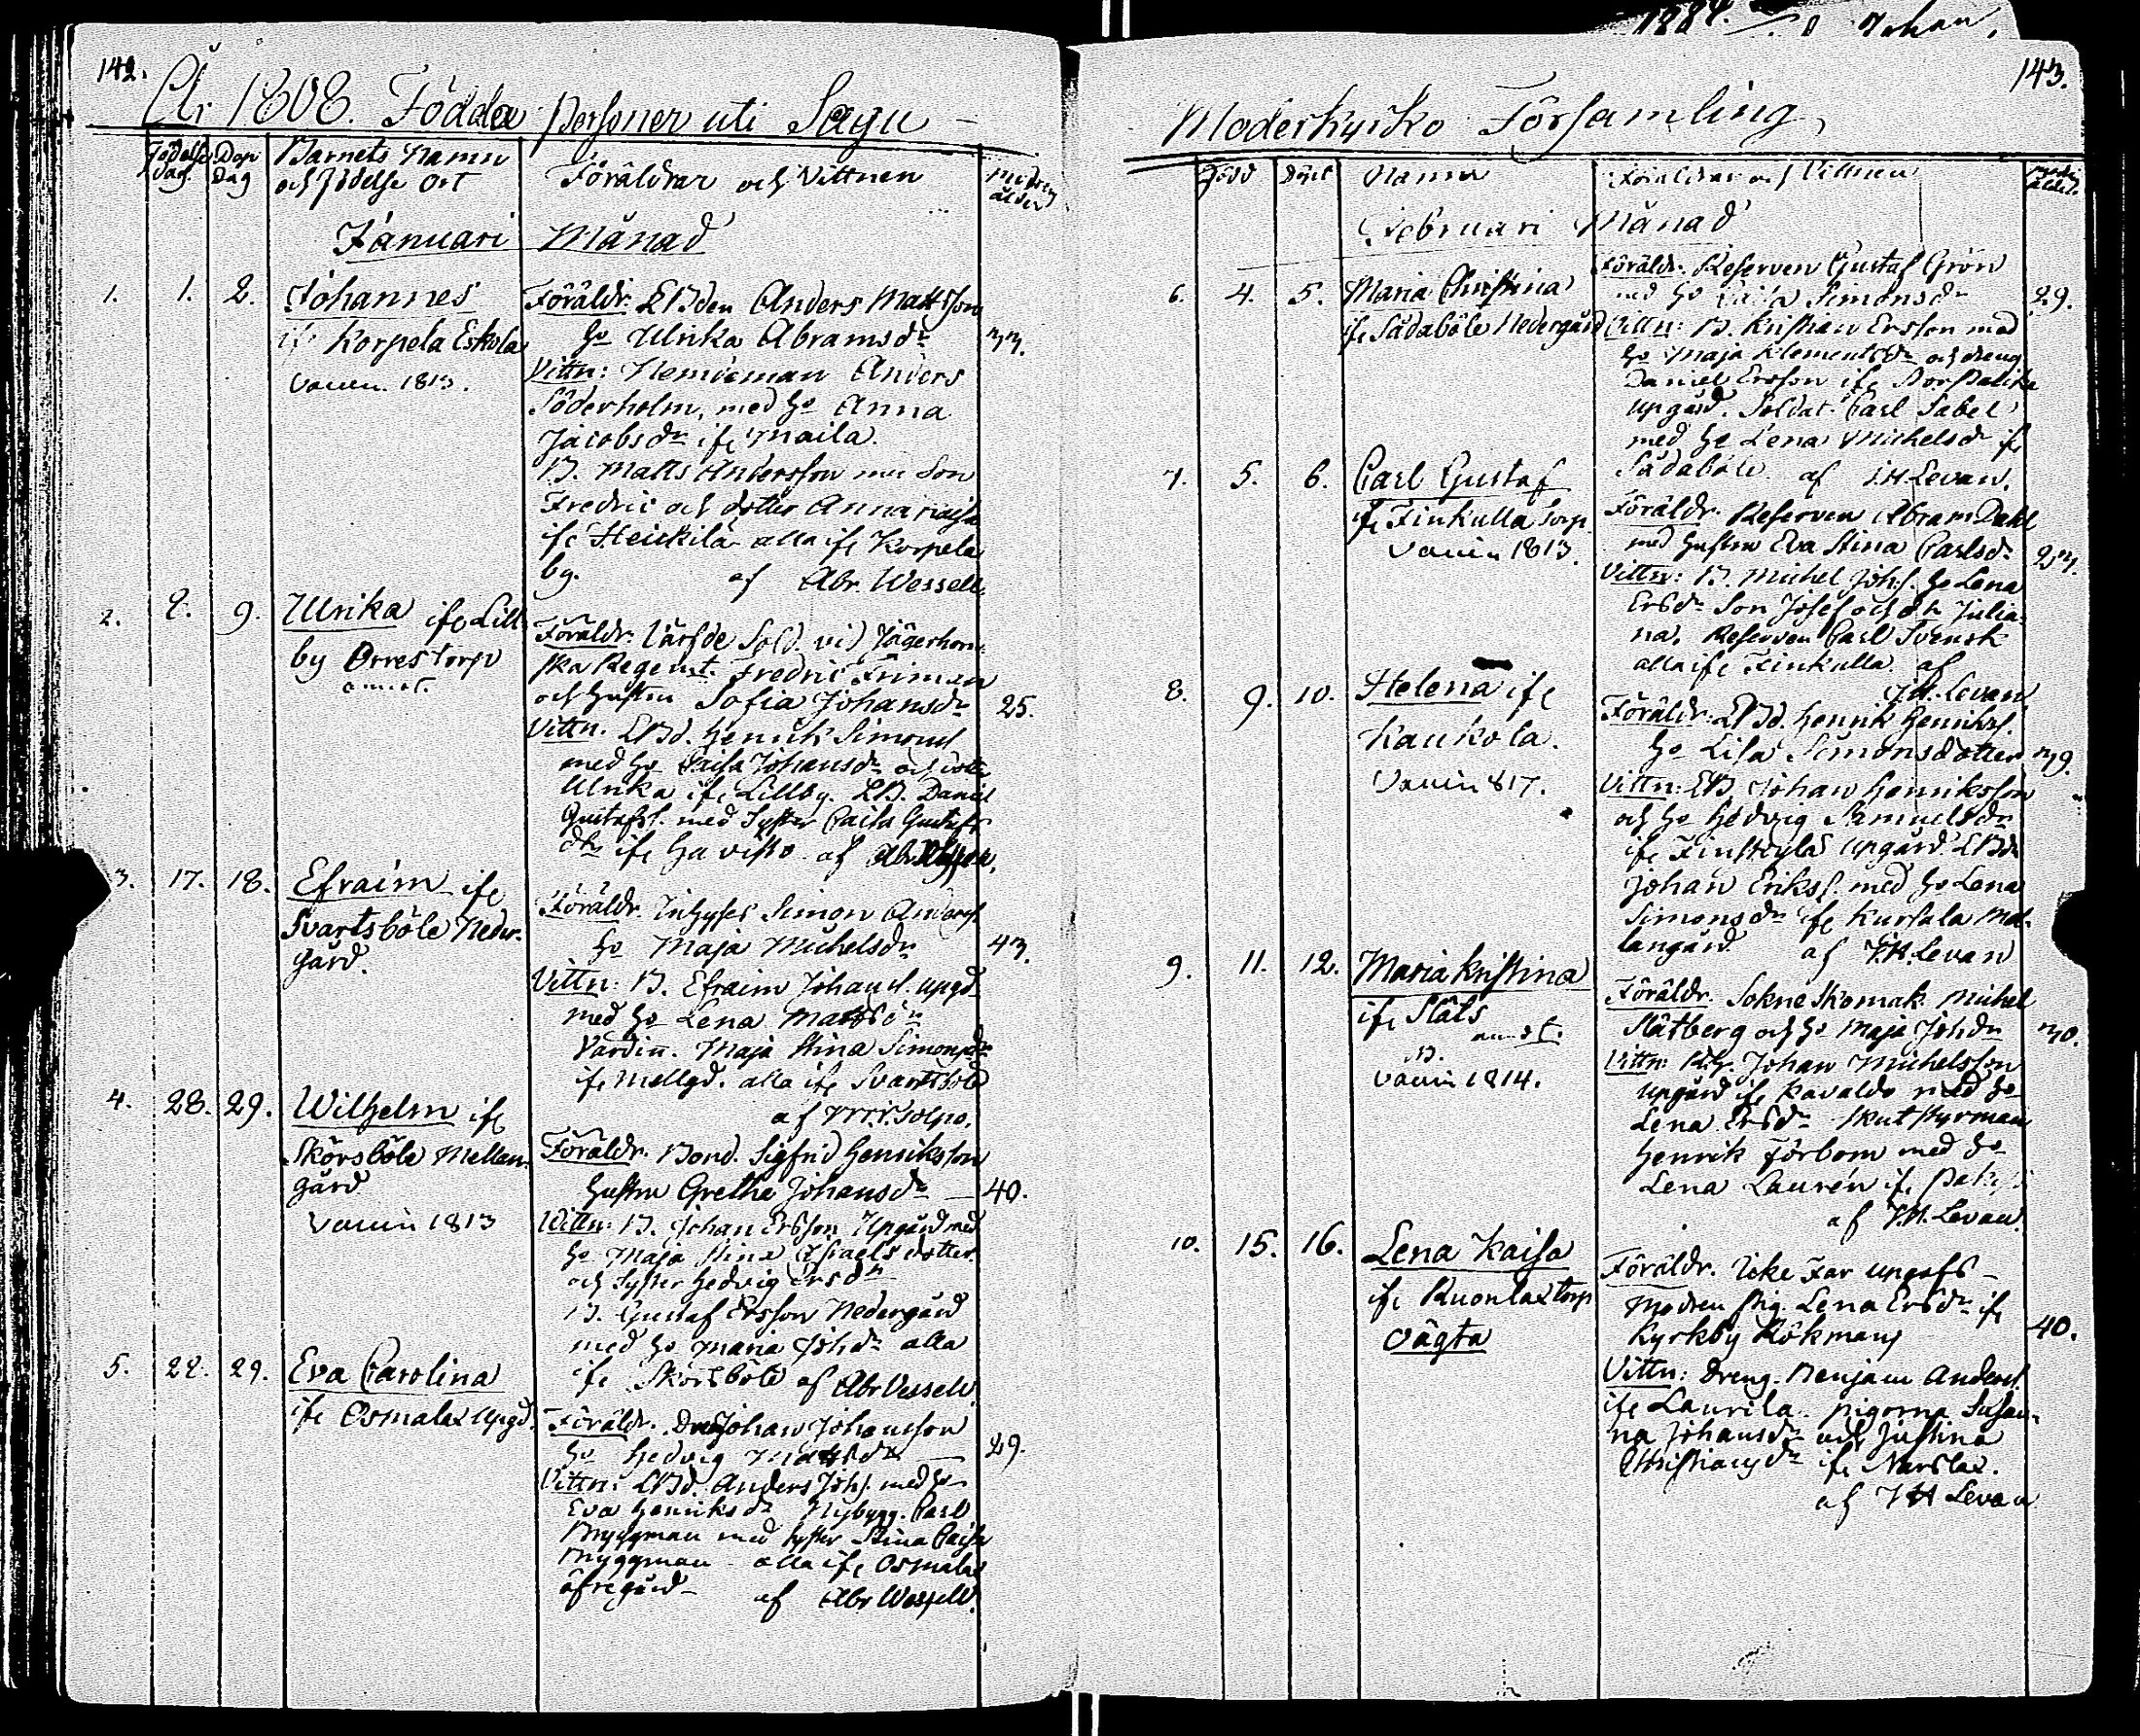 142.
År 1808. Födda personer uti Sagu
Födelse Dag
Dop Dag
Barnets Namn och födelse Ort
Föräldrar och Vittnen
modrens ålder
Januari Månad
1. 1. 2. Johannes
ifr Korpela Eskola
vaccin. 1813.
Föräldr. LBden Anders Mattsson
ho Ulrika Abramsdr 33.
Vittn: Nemdeman Anders
Söderholm, med ho Anna
Jacobsdr ifr Maila.
B. Matts Andersson med Son
Fredric och dotter Anna
ifr Heikilä alla ifr Korpela
by. af Abr. Wessell.
2. 2. 9. Ulrika ifr Lill
by Orrestorp
Föräldr. Värfde Sold. vid Jägerhorn
ska Regemt. Fredric Friman
och hustru Sofia Johansdr 25.
Vittn. LBd. Henrik Simons
med ho Caisa Johansdr och dotter
Ulrika ifr Lillby. LB. Daniel
Gustafss. med Syster Caisa Gustafs
dtr ifr Havisko af
3. 17. 18. Efraim ifr
Svartsböle Neder
gård.
Föräldr. Inhyses Simon Anderss.
ho Maja Michelsdr 43.
Vittn: B. Efraim Johans. upgd
med ho Lena Mattsdr
Värdin. Maja Stina Simonsdr
ifr Mellgd. alla ifr Svartsböle
af
4. 28. 29. Wilhelm ifr
Skörsböle Mellan
gård
vaccin 1813
Föräldr. Bond. Sigfrid Henriksson
hustru Grethe Johansdr — 40.
Vittn: B. Johan Ersson Upgård med
ho Maja Stina Israelsdotter
och Syster Hedvig Ersdr
B. Gustaf Ersson Nedergård
med ho Maria Johdr alla
ifr Skörsböle af Abr Wessell.
5. 22. 29. Eva Carolina
ifr Osmalax Upgd.
Föräldr. Dr Johan Johansson
ho Hedvig Mattsdr — 29.
Vittn: LBd. Anders Johs. med ho
Eva Henriksdr Nybygg. Carl
Myggman med syster Stina Caisa
Myggman — alla ifr Osmalax
öfregård — af Abr Wessell.
1884. Johan.
143.
Moderkyrko Församling
Född
Döpt
Namn
Föräldrar och Vittnen
modr. ålder.
Februari Månad
6. 4. 5. Maria Christina
ifr Sådaböle Nedergård
Föräldr. Reserven Gustaf Grön
med ho Caisa Simonsdr 29.
Vittn: B. Kristian Ersson med
ho Maja Klementsdr och dreng
Daniel Ersson ifr
upgård. Soldat Carl Sabel
med ho Lena Michelsdr ifr
Sådaböle af J.H. Levan.
7. 5. 6. Carl Gustaf
ifr Finkulla torp
vaccin 1813.
Föräldr. Reserven Abram Dahl
med hustru Eva Stina Carlsdr 23.
Vittn: B. Michel Johs. ho Lena
Ersdr Son Josef och dr Julia
na, Reserven Carl Svensk
alla ifr Finkulla af
J.H. Levan
8. 9. 10. Helena ifr
Kaukola.
vaccin 817.
Föräldr. LBd. Henrik Henrikss.
ho Lisa Simonsdotter 39.
Vittn: LB. Johan Henriksson
och ho Hedvig Samuelsdr
ifr upgård. LBdn
Johan Erikss. med ho Lena
Simonsdr ifr Kursala Mel
langård af J.H. Levan
9. 11. 12. Maria Kristina
ifr Släts
vaccin 1814.
Föräldr. Sokne Skomak. Michel
Slätberg och ho Maja Johdr 30.
Vittn: Johan Michelsson
upgård ifr Kavaldo med ho
Lena Ersdr Skutstyrman
Henrik Förbom med ho
Lena Laurén ifr
af J.H. Levan.
10. 15. 16. Lena Kaisa
ifr Ruonlax torp
oägta
Föräldr. Icke Far ungafs —
Modren Pig. Lena Ersdr ifr
Kyrkby Rökmans 40.
Vittn: Dreng. Benjam Anderss.
ifr Laurila. pigorna Susan
na Johansdr och Justina
Christiansdr ifr Narslax.
af J H Levan